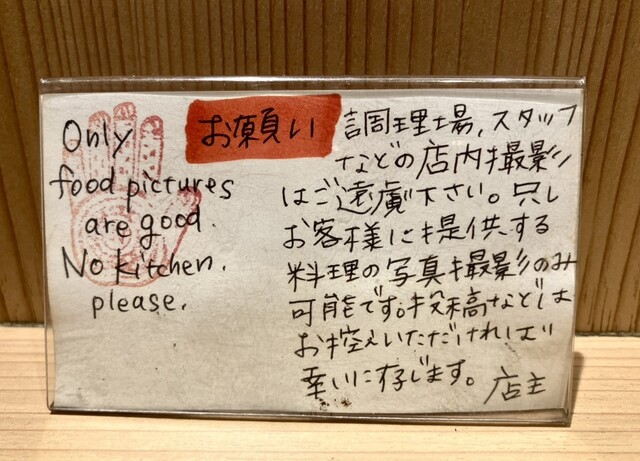 Only
food pictures
are good.
No kitchen.
please.
お願い
調理場、スタッフ
などの店内撮影
はご遠慮下さい。只し
お客様に提供する
料理の写真撮影のみ
可能です。投稿などは
お控えいただければ
幸いに存じます。
店主